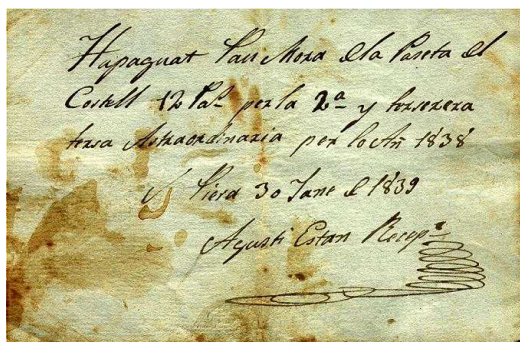 Hapaguat Pau Mora de la Paseta del
Castell 12 Pas. per la 2ª y tersera
tersa Astraordinaria per lo Añ 1838
Piera 30 Jane de 1839
Agusti Estan Recepr